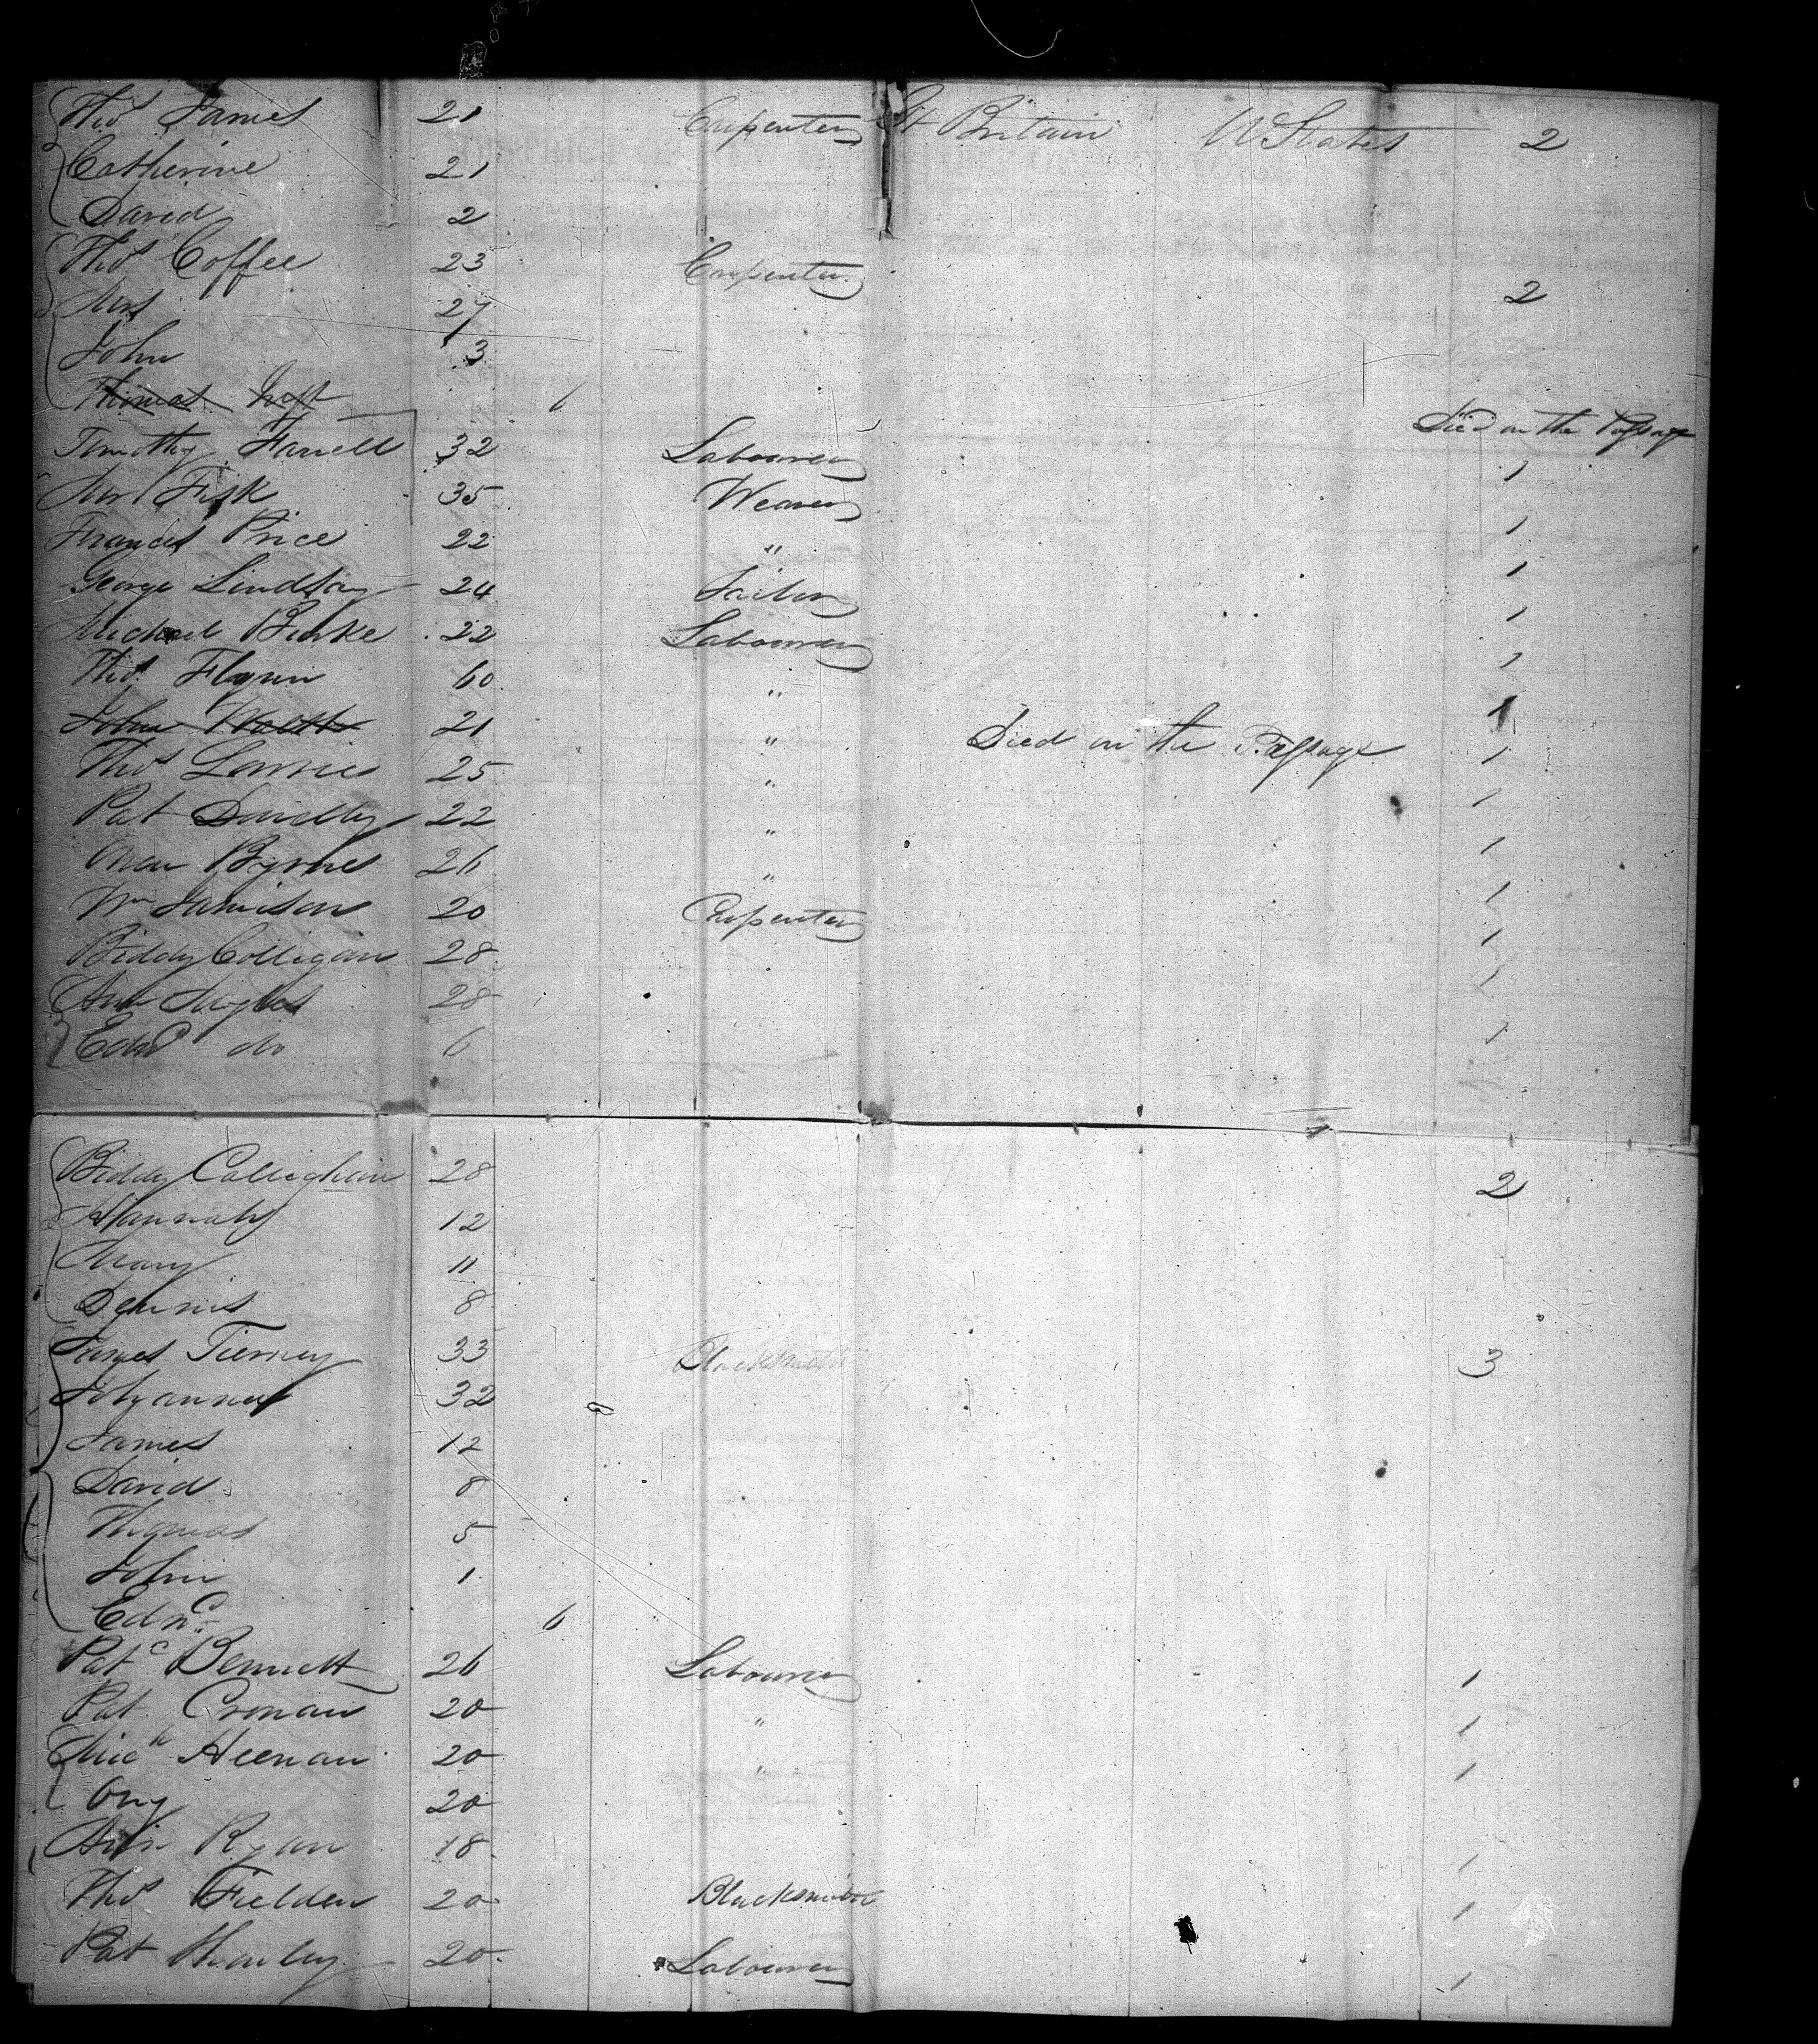 Thos James 21 Carpenter Gt Britain U States 2
Catherine 21
David 2
Thos Coffee 23 Carpenter 2
Mrs 27
John 3
Thomas Inft 6 Died on the Passage
Timothy Farrell 32 Labourer 1
Mr Fisk 35 Weaver 1
Frances Price 22 " 1
George Lindsay 24 Tailor 1
Michael Burke 22 Labourer 1
Thos Flynn 60 " 1
John 21 " Died on the Passage 1
Thos 25 " 1
Pat 22 " 1
Owen Byrnes 26 " 1
Wm Jamison 20 Carpenter 1
Biddy Colligan 28 1
Ann 28 1
Edwd do 6
Biddy Callighan 28 2
Hannah 12
Mary 11
Dennis 8
James Tierney 33 Blacksmith 3
Johanna 32
James 12
David 8
Thomas 5
John 1
Edwd 6
Patc Bennett 26 Labourer 1
Pat Cronan 20 " 1
Michl Heenan 20 " 1
20
Ann Ryan 18 1
Thos Fielden 20 Blacksmith 1
Pat 20 Labourer 1